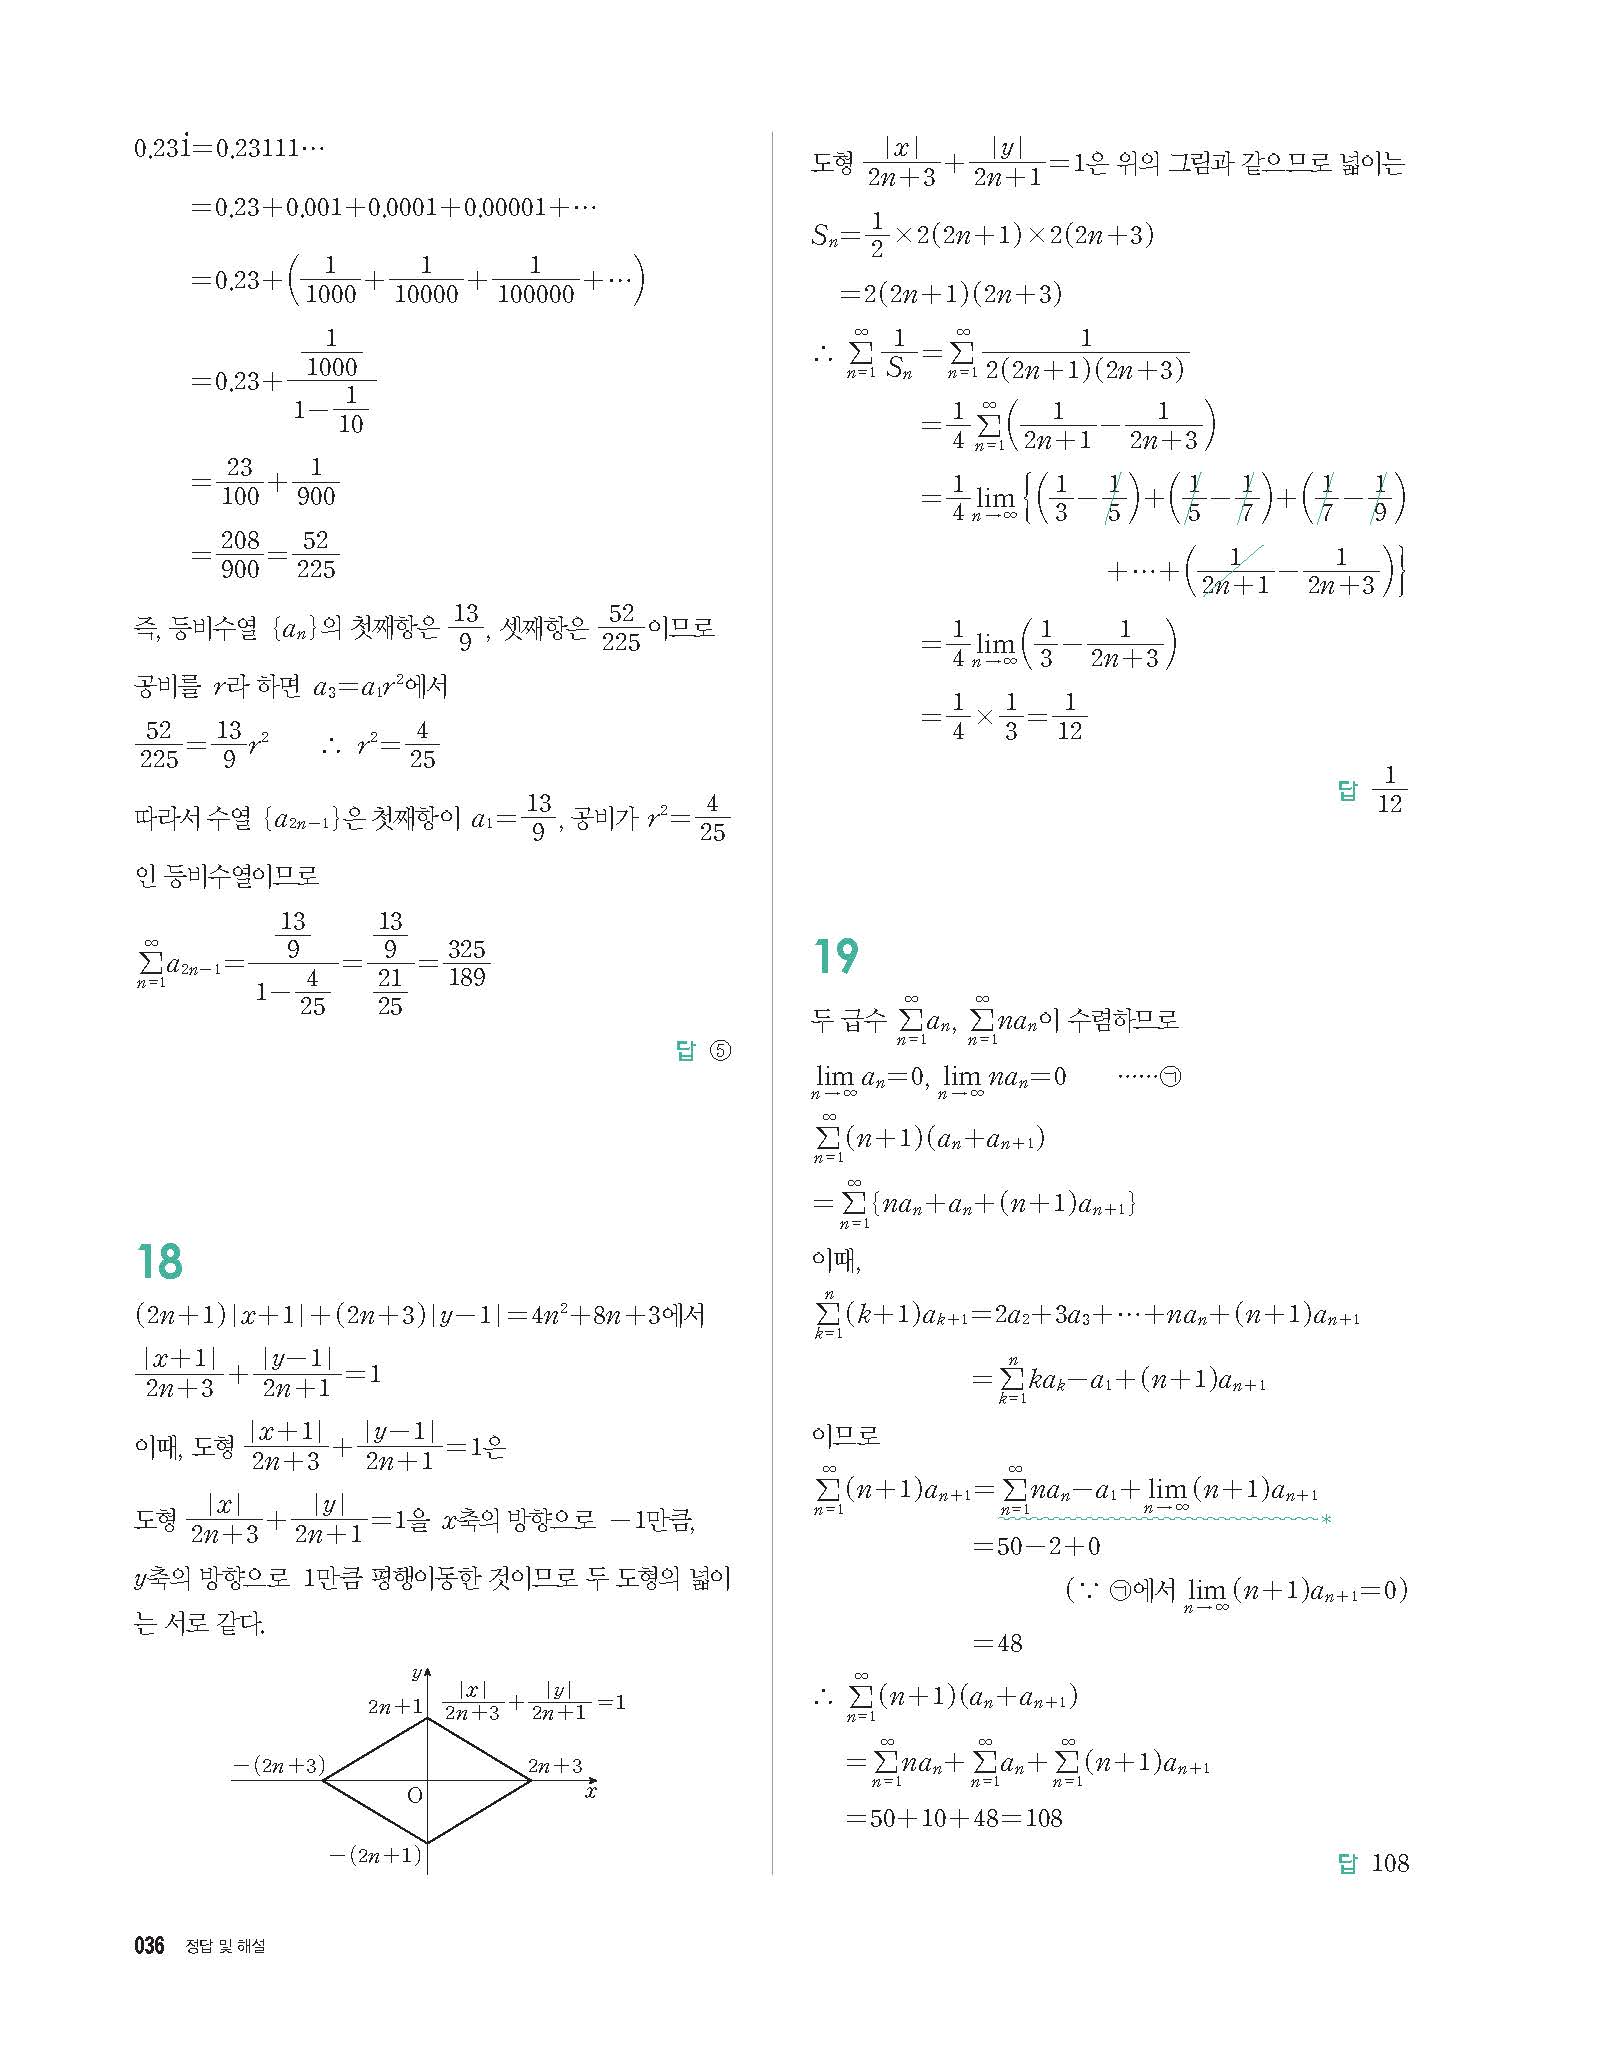 0.231̇=0.23111…
=0.23+0.001+0.0001+0.00001+…
=0.23+(1/1000+1/10000+1/100000+…)
=0.23+(1/1000)/(1-1/10)
=23/100+1/900
=208/900=52/225
즉, 등비수열 {aₙ}의 첫째항은 13/9, 셋째항은 52/225이므로
공비를 r라 하면 a₃=a₁r²에서
52/225=13/9 r² ∴ r²=4/25
따라서 수열 {a₂ₙ₋₁}은 첫째항이 a₁=13/9, 공비가 r²=4/25
인 등비수열이므로
∑_{n=1}^{∞} a₂ₙ₋₁=(13/9)/(1-4/25)=(13/9)/(21/25)=325/189
답 ⑤
18
(2n+1)|x+1|+(2n+3)|y-1|=4n²+8n+3에서
|x+1|/(2n+3)+|y-1|/(2n+1)=1
이때, 도형 |x+1|/(2n+3)+|y-1|/(2n+1)=1은
도형 |x|/(2n+3)+|y|/(2n+1)=1을 x축의 방향으로 -1만큼,
y축의 방향으로 1만큼 평행이동한 것이므로 두 도형의 넓이
는 서로 같다.
y
2n+1 |x|/(2n+3)+|y|/(2n+1)=1
-(2n+3) 2n+3
O x
-(2n+1)
도형 |x|/(2n+3)+|y|/(2n+1)=1은 위의 그림과 같으므로 넓이는
Sₙ=1/2×2(2n+1)×2(2n+3)
=2(2n+1)(2n+3)
∴ ∑_{n=1}^{∞} 1/Sₙ=∑_{n=1}^{∞} 1/(2(2n+1)(2n+3))
=1/4 ∑_{n=1}^{∞}(1/(2n+1)-1/(2n+3))
=1/4 lim_{n→∞}{(1/3-1/5)+(1/5-1/7)+(1/7-1/9)
+…+(1/(2n+1)-1/(2n+3))}
=1/4 lim_{n→∞}(1/3-1/(2n+3))
=1/4×1/3=1/12
답 1/12
19
두 급수 ∑_{n=1}^{∞} aₙ, ∑_{n=1}^{∞} naₙ이 수렴하므로
lim_{n→∞} aₙ=0, lim_{n→∞} naₙ=0 ……㉠
∑_{n=1}^{∞}(n+1)(aₙ+aₙ₊₁)
=∑_{n=1}^{∞}{naₙ+aₙ+(n+1)aₙ₊₁}
이때,
∑_{k=1}^{n}(k+1)aₖ₊₁=2a₂+3a₃+…+naₙ+(n+1)aₙ₊₁
=∑_{k=1}^{n} kaₖ-a₁+(n+1)aₙ₊₁
이므로
∑_{n=1}^{∞}(n+1)aₙ₊₁=∑_{n=1}^{∞} naₙ-a₁+lim_{n→∞}(n+1)aₙ₊₁ *
=50-2+0
(∵ ㉠에서 lim_{n→∞}(n+1)aₙ₊₁=0)
=48
∴ ∑_{n=1}^{∞}(n+1)(aₙ+aₙ₊₁)
=∑_{n=1}^{∞} naₙ+∑_{n=1}^{∞} aₙ+∑_{n=1}^{∞}(n+1)aₙ₊₁
=50+10+48=108
답 108
036 정답 및 해설